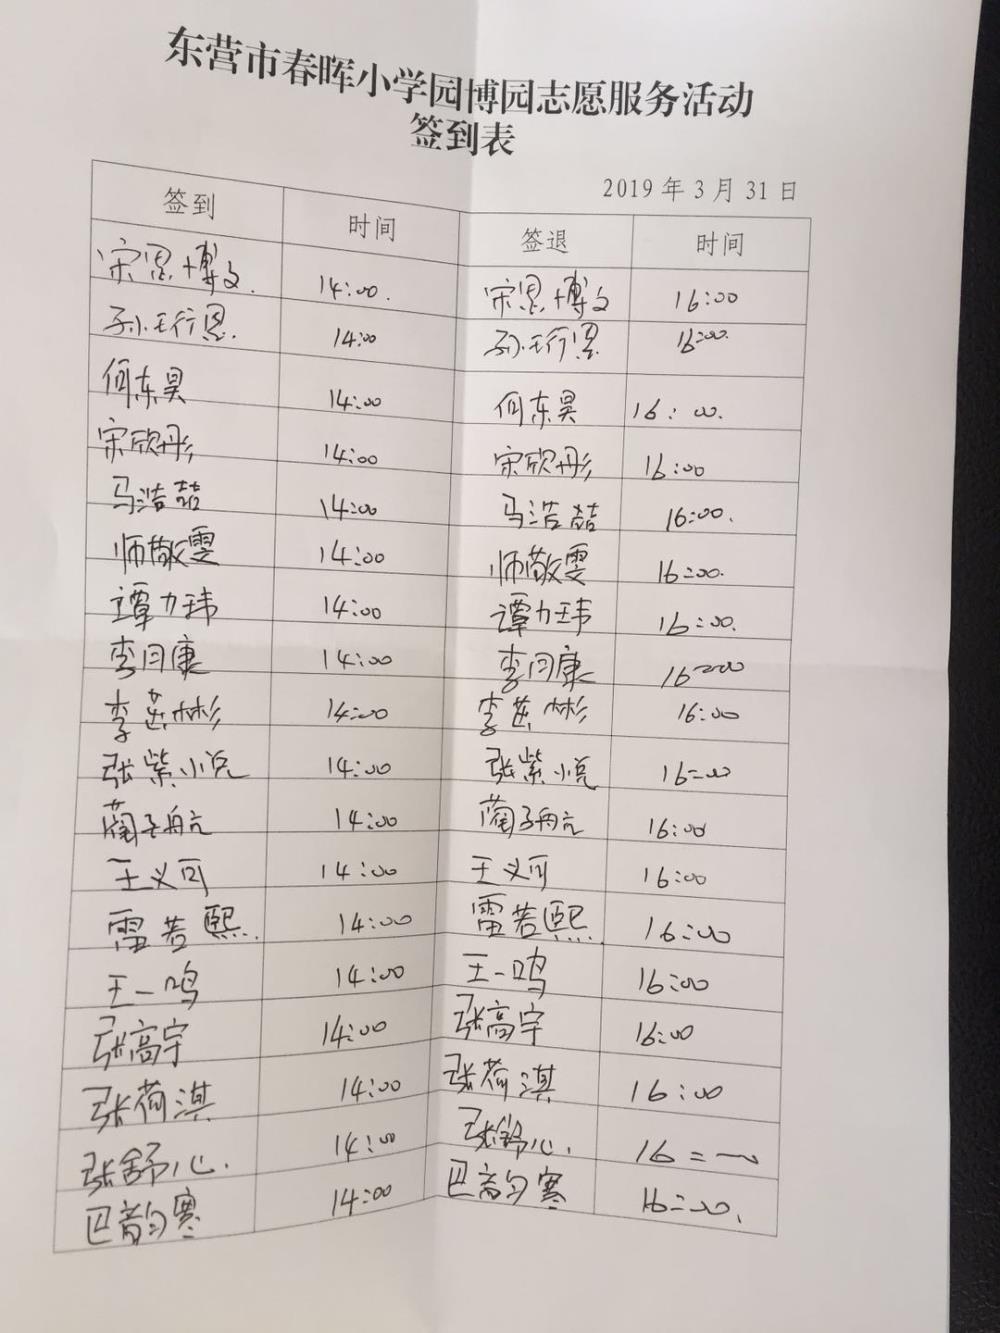 东营市春晖小学园博园志愿服务活动
签到表
2019年3月31日
签到 时间 签退 时间
宋恩博文. 14:00. 宋恩博文 16:00
孙珩恩. 14:00 孙珩恩 16:00.
何东昊 14:00 何东昊 16:00.
宋欣彤 14:00 宋欣彤 16:00
马浩喆 14:00 马浩喆 16:00.
师敬雯 14:00 师敬雯 16:00.
谭力玮 14:00 谭力玮 16:00.
李闫康 14:00 李闫康 16:00
李 彬 14:00 李 彬 16:00
张紫悦 14:00 张紫悦 16:00
蔺子航 14:00 蔺子航 16:00
王义可 14:00 王义可 16:00
雷若熙. 14:00 雷若熙. 16:00
王一鸣 14:00 王一鸣 16:00
张高宇 14:00 张高宇 16:00
张荷淇 14:00 张荷淇 16:00
张舒心. 14:00 张舒心. 16:00
巴韵寒 14:00 巴韵寒 16:00.